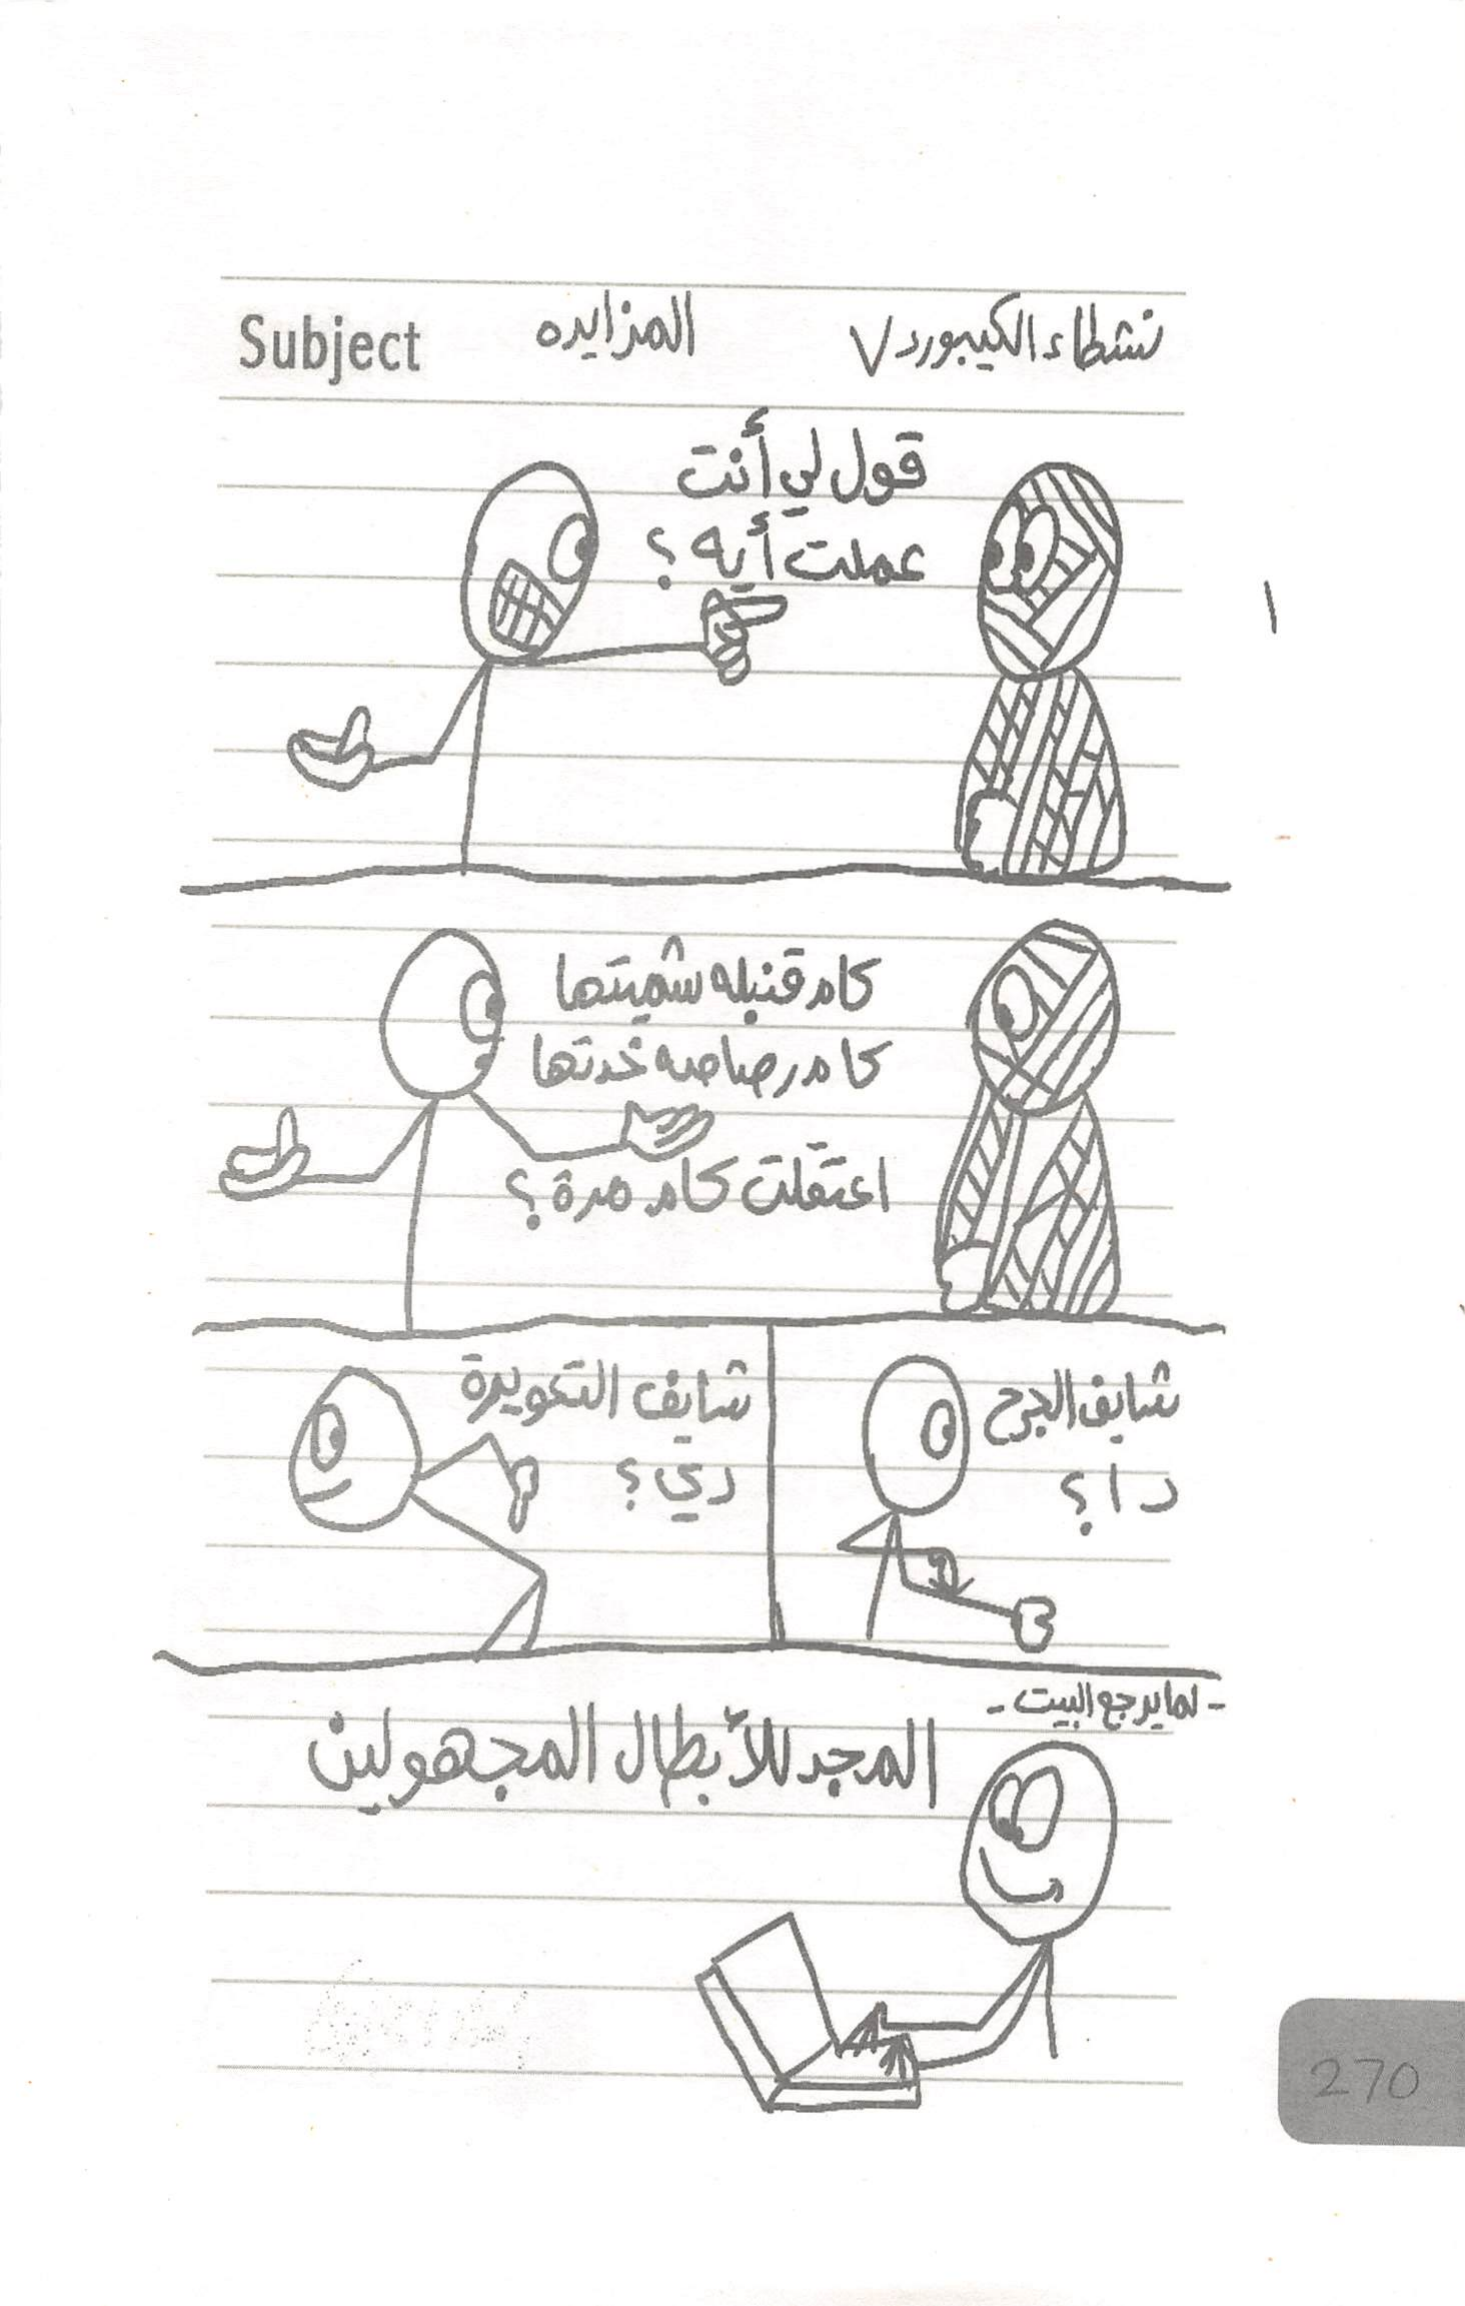 نشطاء الكيبورد ٧
المزايده
Subject
قول لي أنت
عملت أيه؟
١
كام قنبله شميتها
كام رصاصه خدتها
اعتقلت كام مرة؟
شايف الجرح
دا؟
شايف التعويرة
دي؟
- لما يرجع البيت -
المجد للأبطال المجهولين
270